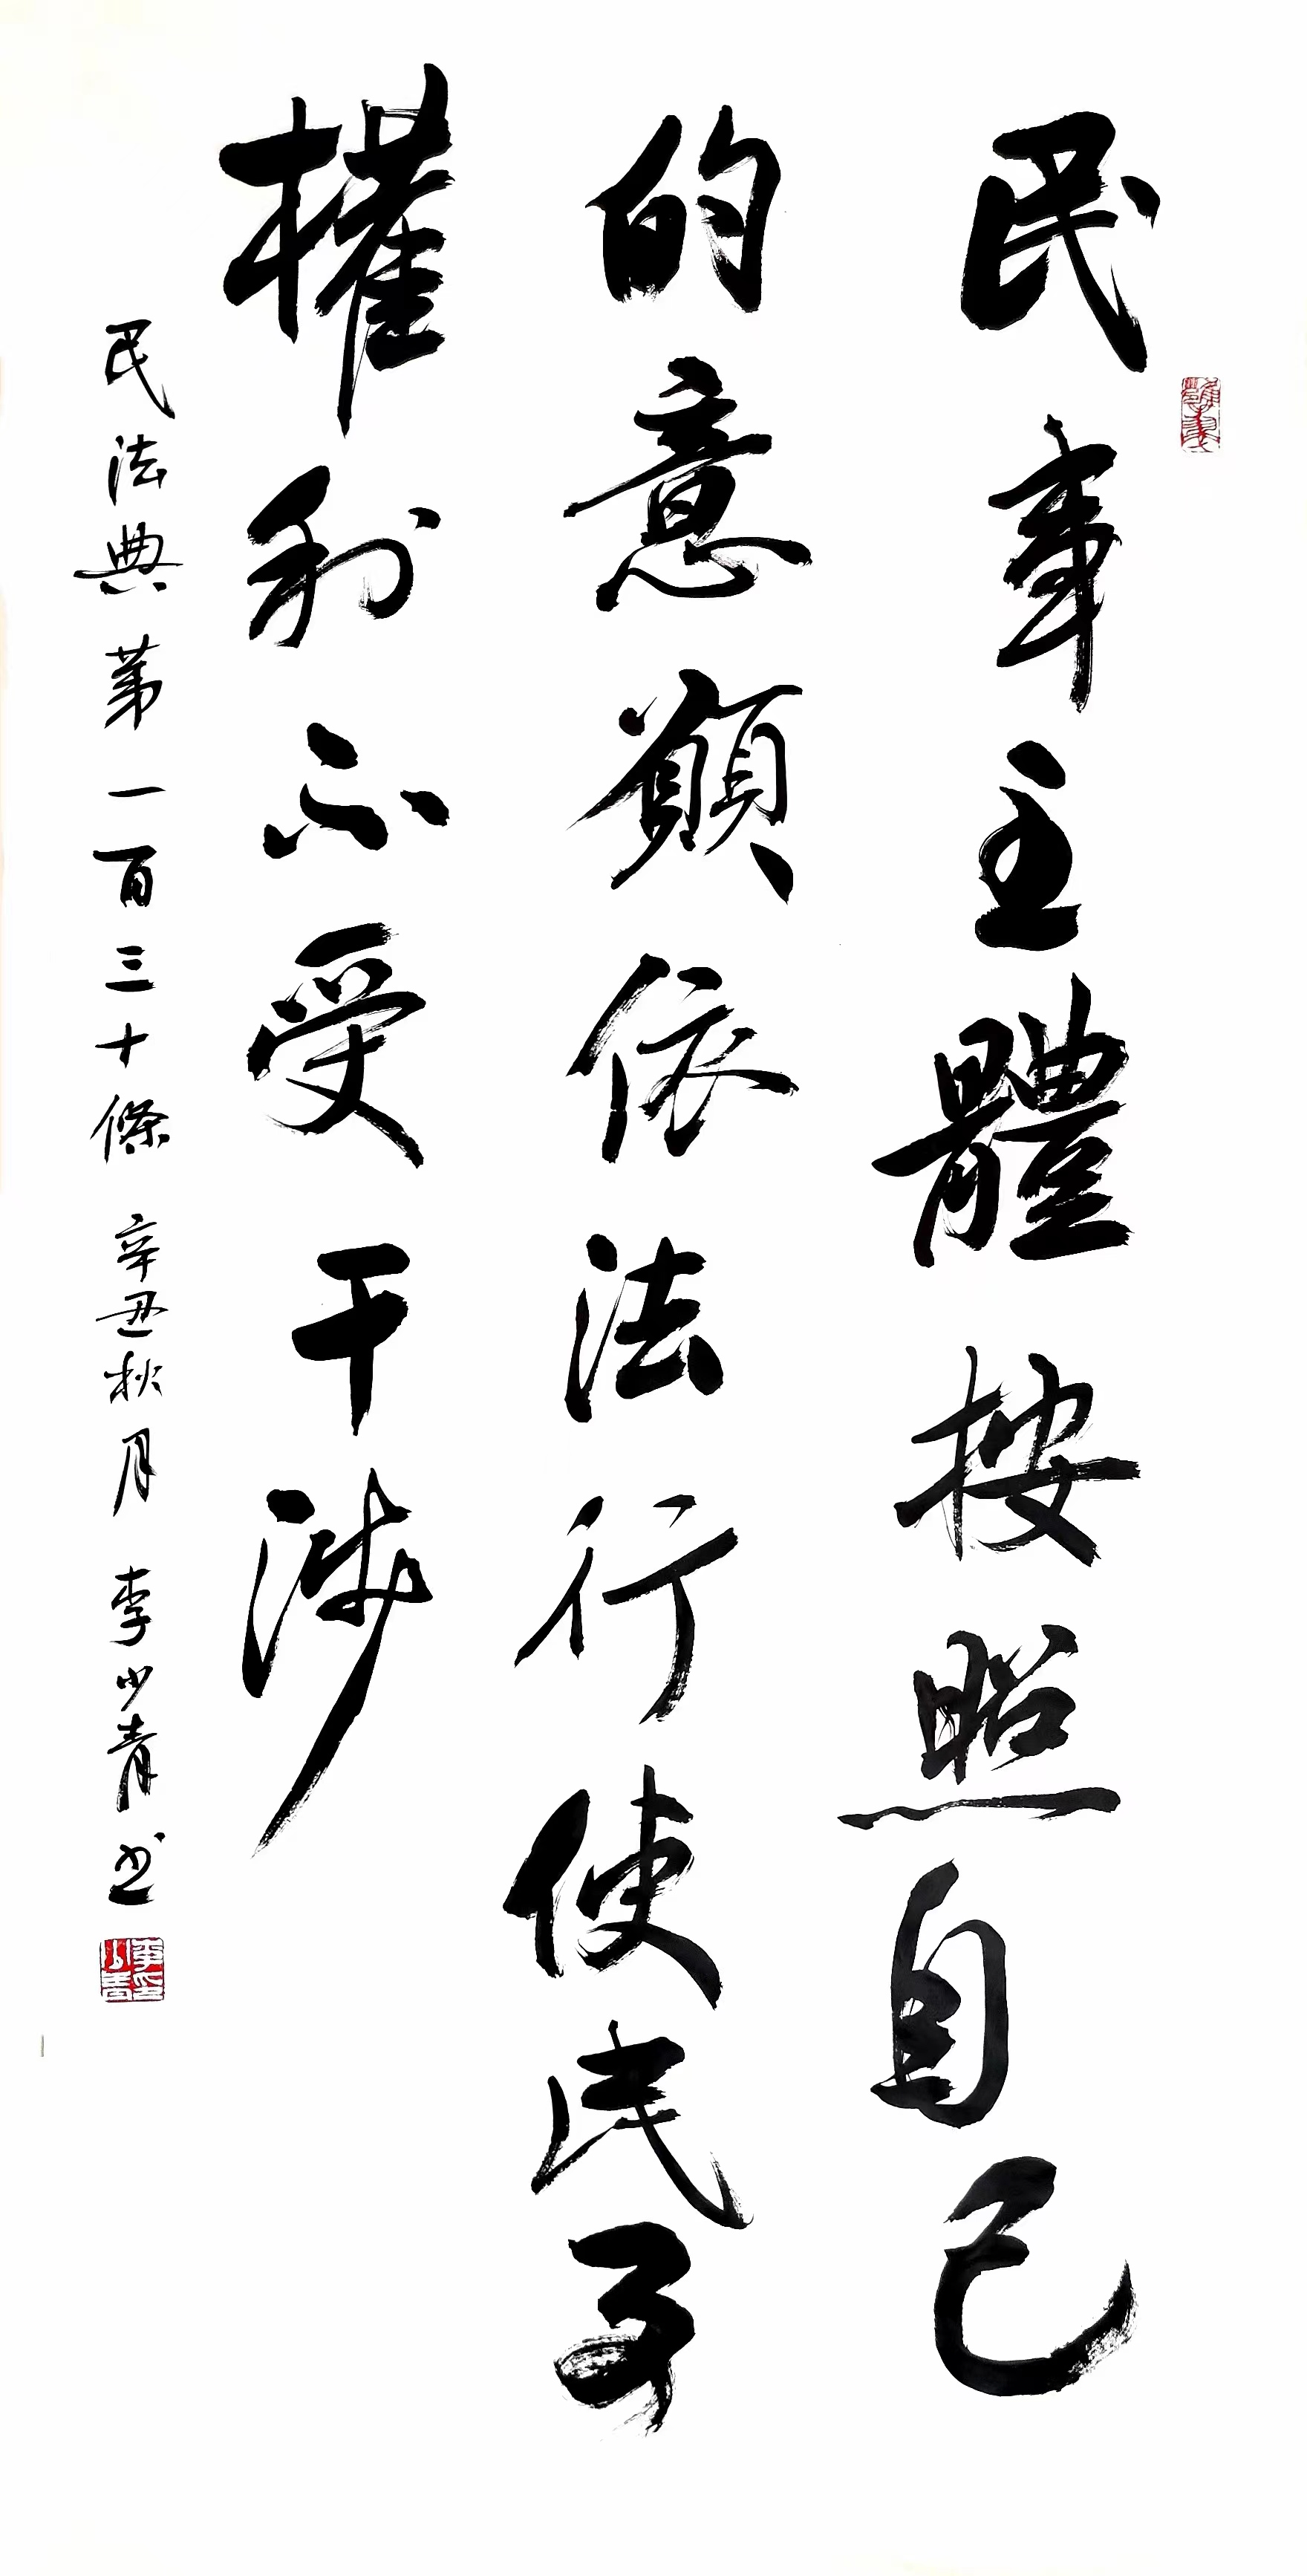 民事主體按照自己
的意願依法行使民事
權利不受干涉
民法典第一百三十條 辛丑秋月 李少青书